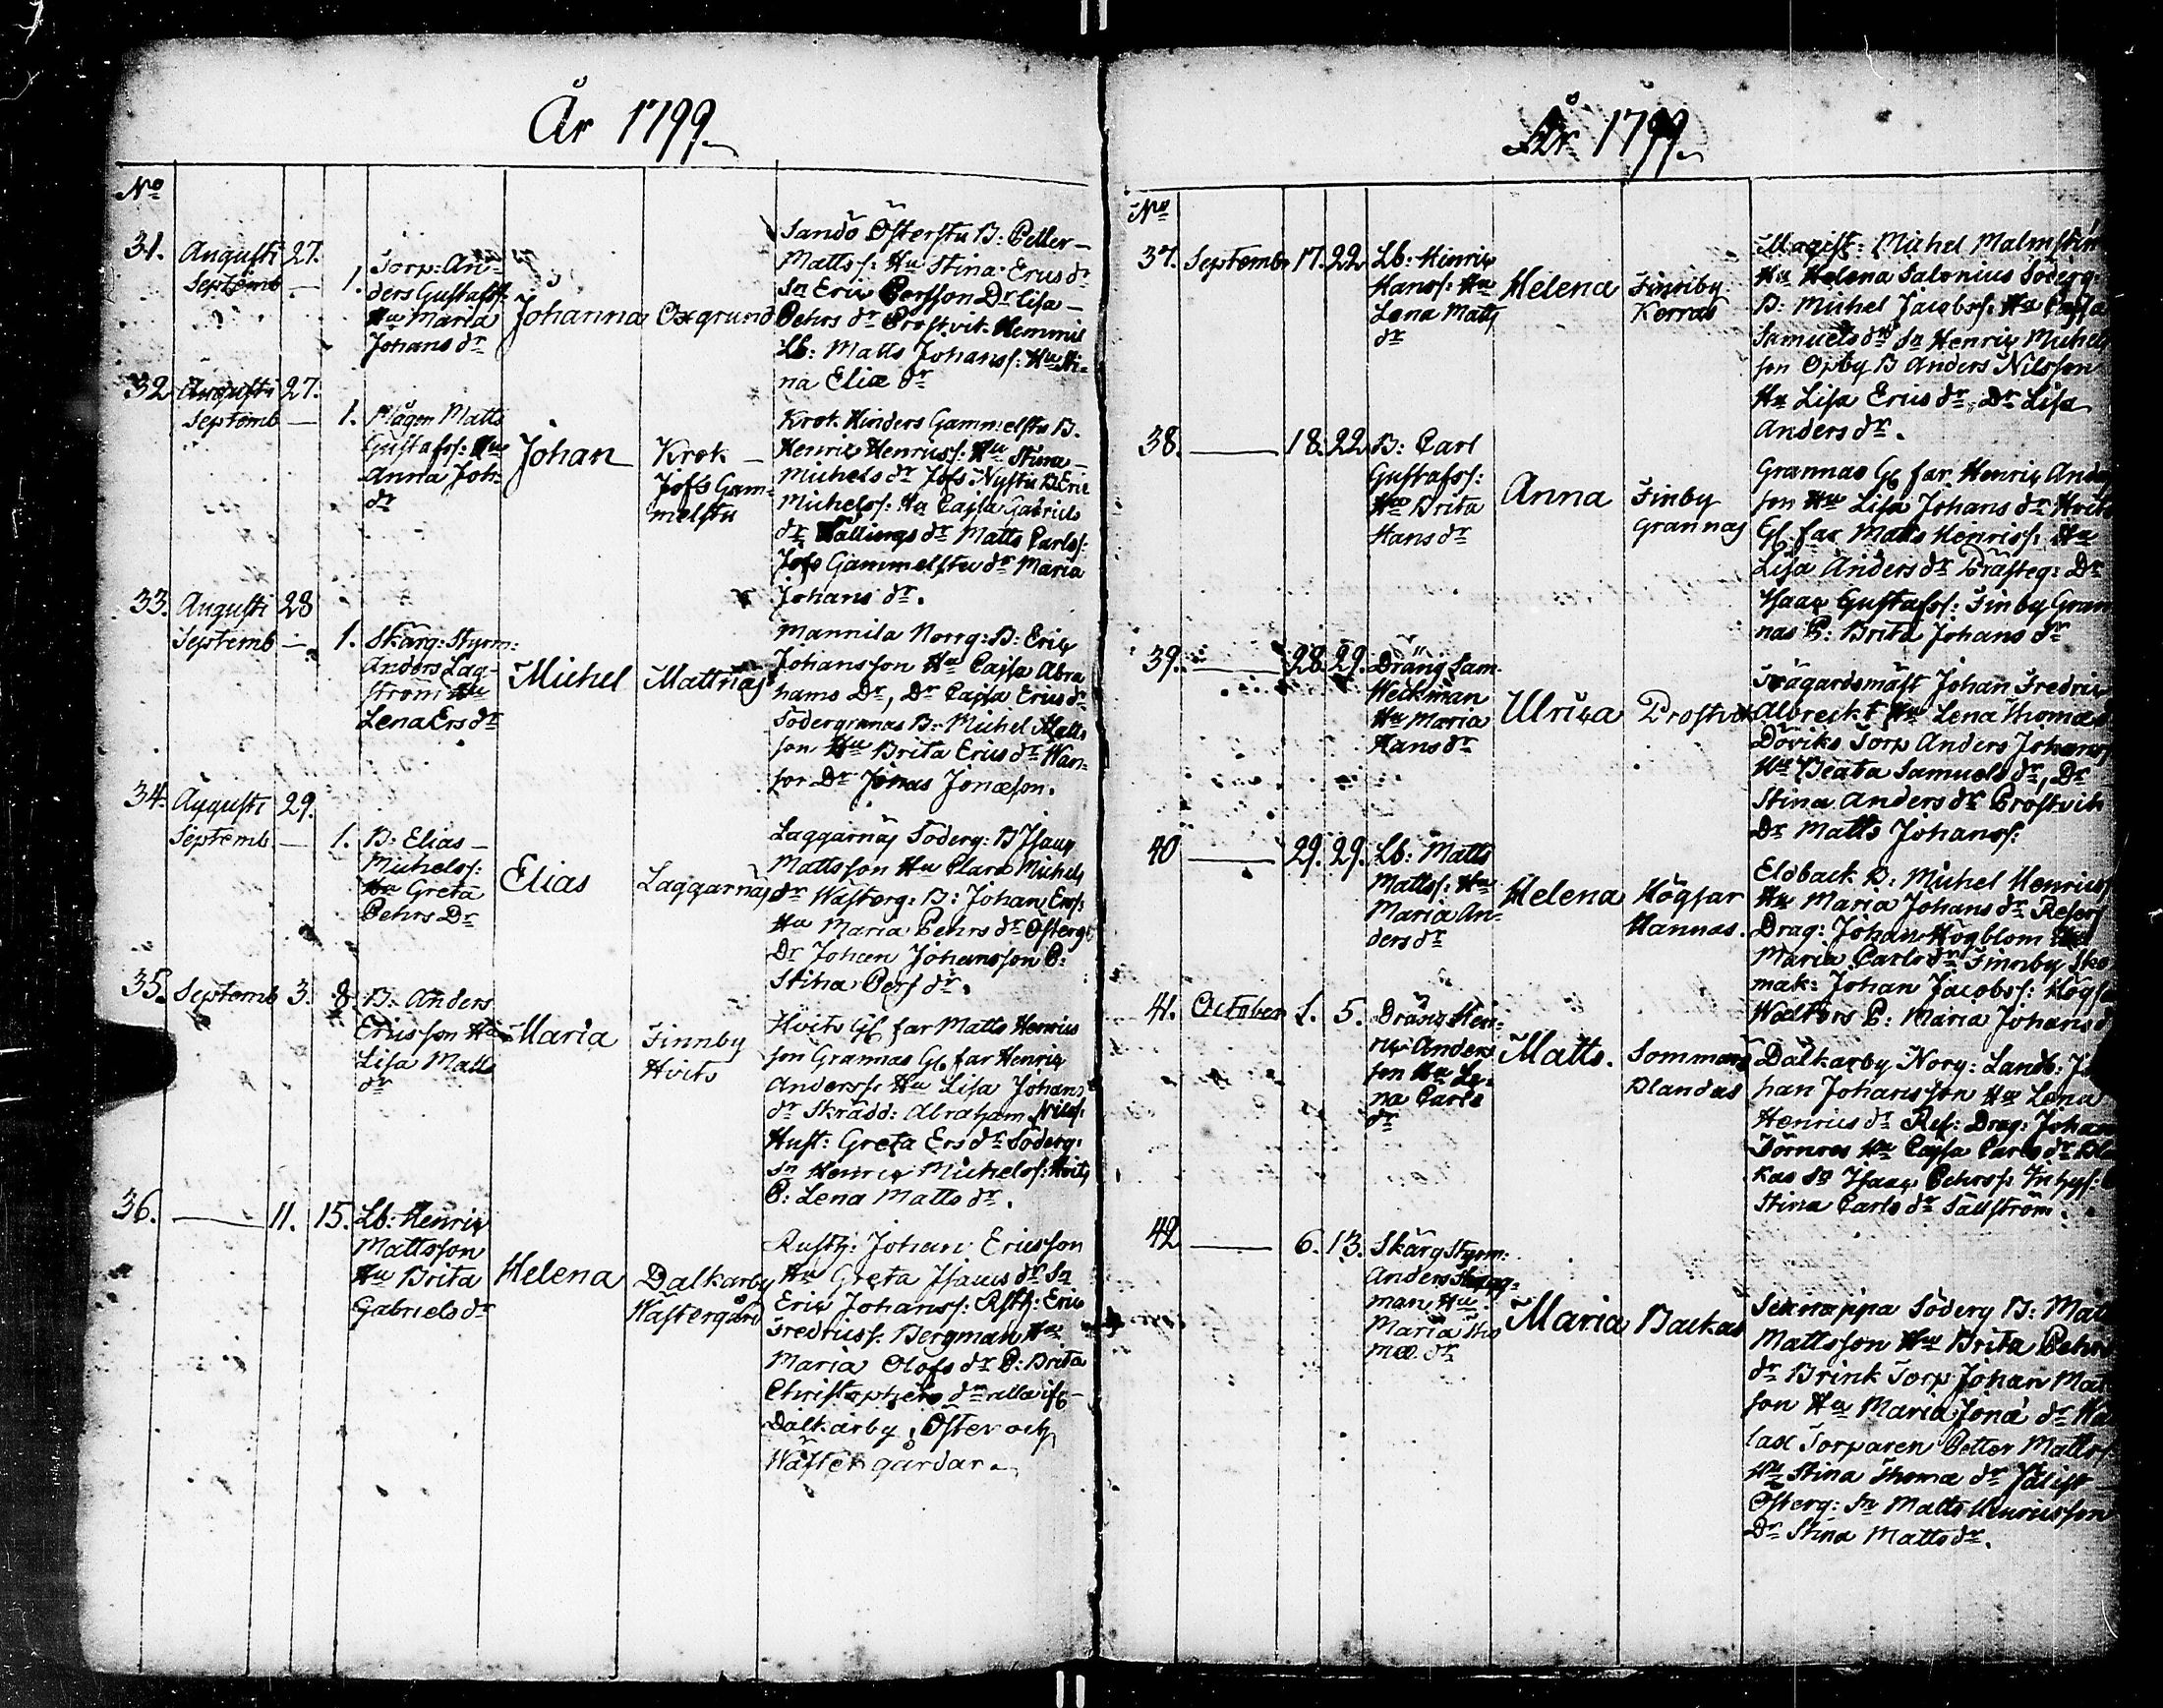 År 1799.
No
31. Augusti 27.
Septemb — 1.
Torp: An-
ders Gustafss:
Hu Maria
Johans dr
Johanna
Oxgrund
Sandö Österstu B: Petter
Matts s: Hu Stina Erics dr
Sn Eric Persson Dr Lisa
Pehrs dr Prostvik Hemmis
Lb: Matts Johanss: Hu Sti-
na Eliæ dr
32 Augusti 27.
Septemb — 1.
Mågen Matts
Gustafss: Hu
Anna Joh-
dr
Johan
Krok
Jofs Gam-
melstu
Krok Hinders Gammelstu B.
Henric Henricss: Hu Stina
Michels dr Jofs Nystu B Eric
Michelss: Hu Cajsa Gabriels
dr Dr Matts Carlss:
Jofs Gammelstu dr Maria
Johans dr.
33. Augusti 28
Septemb — 1.
Skärg: Styrm:
Anders Lag-
ström Hu
Lena Ers dr
Michel
Mattnäs
Mannila Norrg: B: Eric
Johansson Hu Cajsa Abra
hams Dr, Dr Cajsa Erics dr
Södergrannas B: Michel Matts
son Hu Brita Erics dr Wan-
sor Dr Jonas Jonæson.
34. Augusti 29.
Septemb — 1.
B: Elias
Michelss:
Hu Greta
Pehrs Dr
Elias
Laggarnäs
Laggarnäs Söderg: B Isaac
Mattsson Hu Clara Michels
dr Wästerg: B: Johan Erss:
Hu Maria Pehrs dr Österg:
Dr Johan Johansson P:
Stina Pers dr.
35. Septemb 3. 8
B: Anders
Ericsson Hu
Lisa Matts
dr
Maria
Finnby
Hvits
Hvits Gl. far Matts Henrics
son Grannas Gl. far Henric
Anderss: Hu Lisa Johans
dr Skrädd: Abraham Nilss:
Hust: Greta Ers dr Söderg:
Sn Henric Michelss: Hvits
P: Lena Matts dr.
36. — 11. 15.
Lb: Henric
Mattsson
Hu Brita
Gabriels dr
Helena
Dalkarby
Wästergård
Rusth: Johan Ericsson
Hu Greta Isaacs dr Sn
Eric Johanss: Rsth: Eric
Fredricss: Bergman Hu
Maria Olofs dr P: Brita
Christophers dr alla ifr
Dalkarby Öster och
Wäster gårdar.
År 1799.
No
37. Septemb 17. 22
Lb: Hinric
Hanss: Hu
Lena Matts
dr
Helena
Finnby
Korras
Magist: Michel Malmstin
Hu Helena Salonius Söderg:
B: Michel Jacobss: Hu Cajsa
Samuels dr Sn Henric Michels
son Opby B Anders Nilsson
Hu Lisa Erics dr, Dr Lisa
Anders dr.
38. — 18. 22
B: Carl
Gustafss:
Hu Brita
Hans dr
Anna
Finby
Grannas
Grannas Gl. far Henric Anders
son Hu Lisa Johans dr Hvits
Gl. far Matts Henricss: Hu
Lisa Anders dr Prästeg: Dr
Isaac Gustafss: Finby Gran
nas P: Brita Johans dr
39. — 28. 29.
Dräng Sam.
Weckman
Hu Maria
Hans dr
Ulrica
Prostvik
Trägårdsmäst Johan Fredric
Albrecht Hu Lena Thomæ
Döviks Torp Anders Johanss
Hu Beata Samuels dr, Dr
Stina Anders dr Prostvik
Dr Matts Johanss:
40 — 29. 29.
Lb: Matts
Mattss: Hu
Maria An-
ders dr
Helena
Högsar
Hannas.
Eldback B: Michel Henricss
Hu Maria Johans dr Reserf
Drag: Johan Högblom Hu
Maria Carls dr Finnby Sko
mak: Johan Jacobss: Högsar
P: Maria Johans dr
41. October 1. 5.
Dräng Hen-
ric Anders
son Hu Le-
na Carls
dr
Matts.
Sommarö
Blandas
Dalkarby Norg: Landb: Jo
han Johansson Hu Lena
Henrics dr Ref: Drag: Johan
Törnros Hu Cajsa Carls dr
kas dr Isaac Pehrss: Inhys:
Stina Carls dr Sällström.
42 — 6. 13.
Skärg Styrm:
Anders
man Hu
Maria Tho
mæ dr
Maria
Backas
Seknappa Söderg B: Matts
Mattsson Hu Brita Pehrs
dr Brink Torp Johan Mat
son Hu Maria Jonæ dr
lax Torparen Petter Mattss
Hu Stina Thomæ dr
Österg: Sn Matts Henricsson
Dr Stina Matts dr.